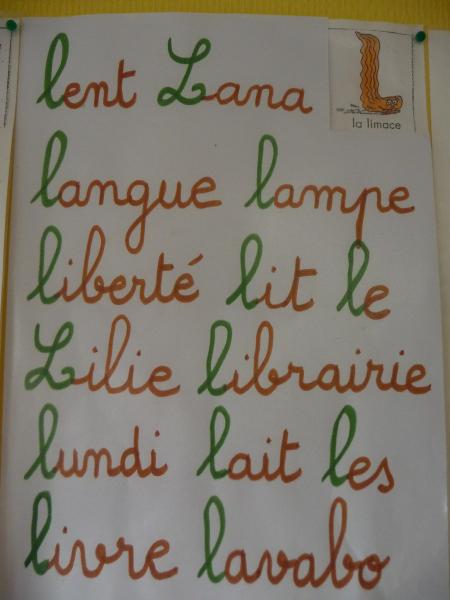 lent Lana
L
la limace
langue lampe
liberté lit le
Lilie librairie
lundi lait les
livre lavabo